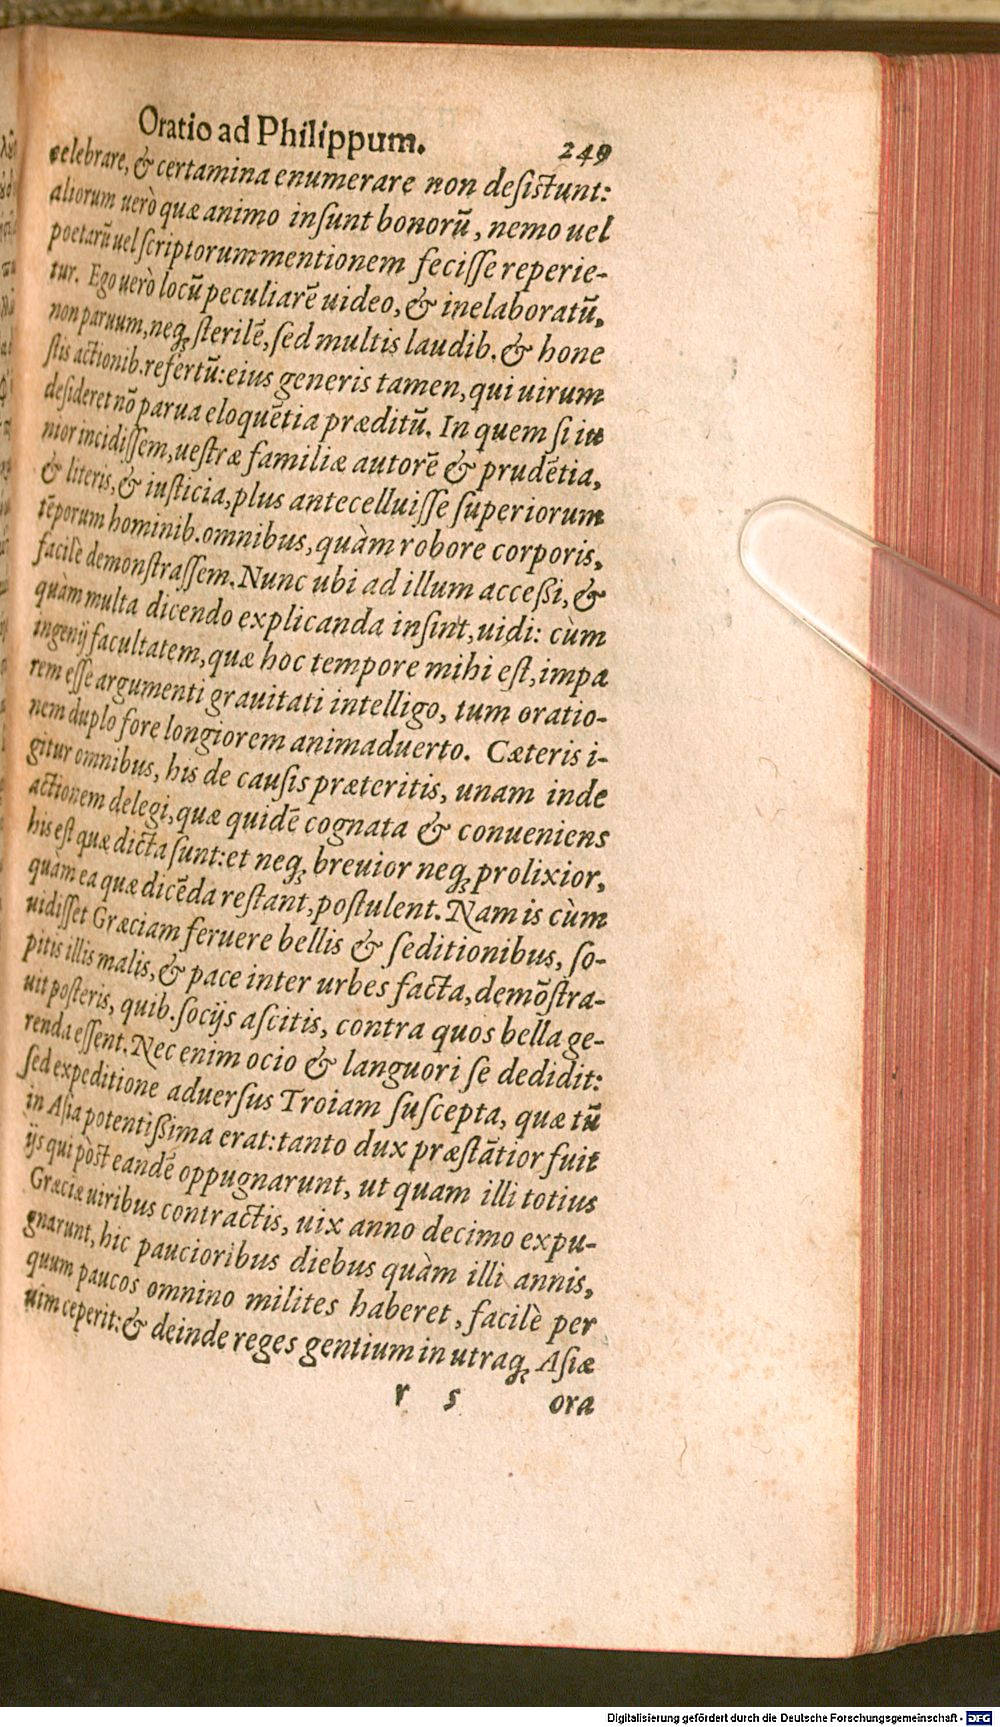 Oratio ad Philippum. 249
celebrare, & certamina enumerare non desistunt:
aliorum uerò quæ animo insunt bonorū, nemo uel
poetarū uel scriptorum mentionem fecisse reperie-
tur. Ego uerò locū peculiarē uideo, & inelaboratū,
non paruum, neq; sterilē, sed multis laudib. & hone
stis actionib. refertū: eius generis tamen, qui uirum
desideret nō parua eloquētia præditū. In quem si iu
nior incidissem, uestræ familiæ autorē & prudētia,
& literis, & iusticia, plus antecelluisse superiorum
tēporum hominib. omnibus, quàm robore corporis,
facilè demonstrassem. Nunc ubi ad illum accessi, &
quàm multa dicendo explicanda insint, uidi: cùm
ingenij facultatem, quæ hoc tempore mihi est, impa
rem esse argumenti grauitati intelligo, tum oratio-
nem duplo fore longiorem animaduerto. Cæteris i-
gitur omnibus, his de causis præteritis, unam inde
actionem delegi, quæ quidē cognata & conueniens
his est quæ dicta sunt: et neq; breuior neq; prolixior,
quam ea quæ dicēda restant, postulent. Nam is cùm
uidisset Græciam feruere bellis & seditionibus, so-
pitis illis malis, & pace inter urbes facta, demōstra-
uit posteris, quib. socijs ascitis, contra quos bella ge-
renda essent. Nec enim ocio & languori se dedidit:
sed expeditione aduersus Troiam suscepta, quæ tū
in Asia potentissima erat: tanto dux præstātior fuit
ijs qui pòst eandē oppugnarunt, ut quam illi totius
Græciæ uiribus contractis, uix anno decimo expu-
gnarunt, hic paucioribus diebus quàm illi annis,
quum paucos omnino milites haberet, facilè per
uim ceperit: & deinde reges gentium in utraq; Asiæ
r 5 ora
Digitalisierung gefördert durch die Deutsche Forschungsgemeinschaft - DFG